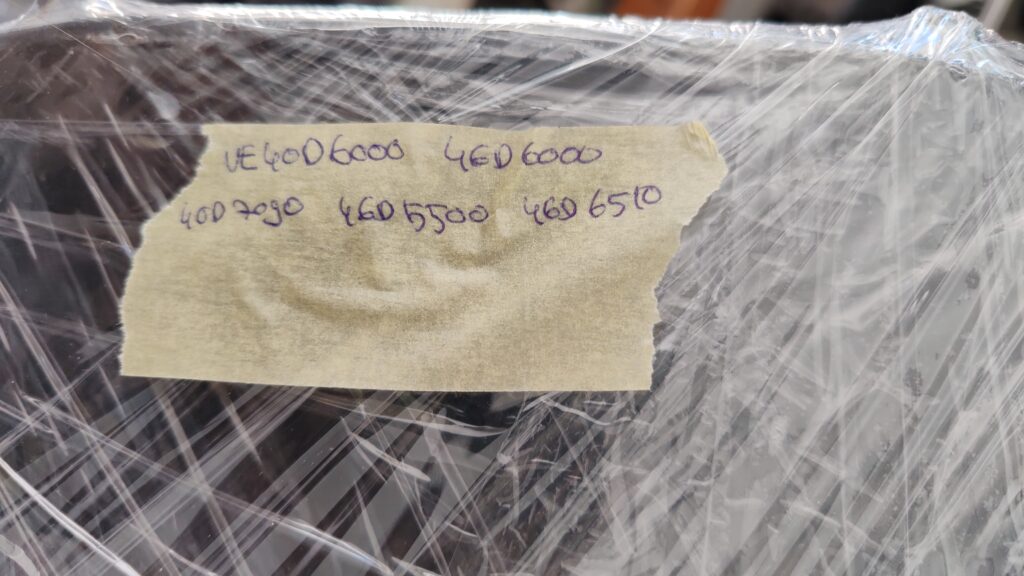 UE40D6000 46D6000
40D7090 46D5500 46D6510